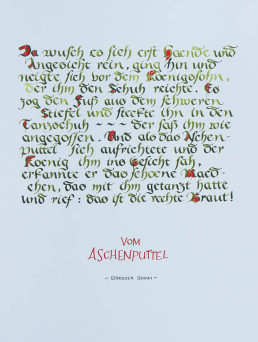 Da wusch es sich erst Haende und
Angesicht rein, ging hin und
neigte sich vor dem Koenigssohn,
der ihm den Schuh reichte. Es
zog den Fuß aus dem schweren
Stiefel und steckte ihn in den
Tanzschuh ~~~ der saß ihm wie
angegossen. Und als das Aschen-
puttel sich aufrichtete und der
Koenig ihm ins Gesicht sah,
erkannte er das schoene Maed-
chen, das mit ihm getanzt hatte
und rief: das ist die rechte Braut!
VOM
ASCHENPUTTEL